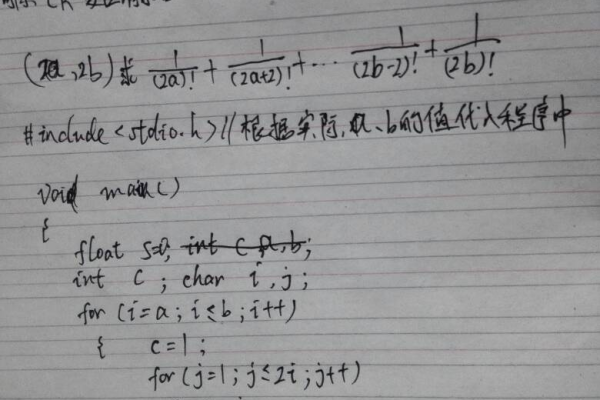 (2a,2b)求 1/(2a)! + 1/(2a+2)! + ··· 1/(2b-2)! + 1/(2b)!
#include<stdio.h>//根据实际,a、b的值代入程序中
void main()
{
float s=0, int c a,b;
int c ; char i,j;
for (i=a ; i≤b ; i++)
{ c=1;
for(j=1; j≤2i; j++)